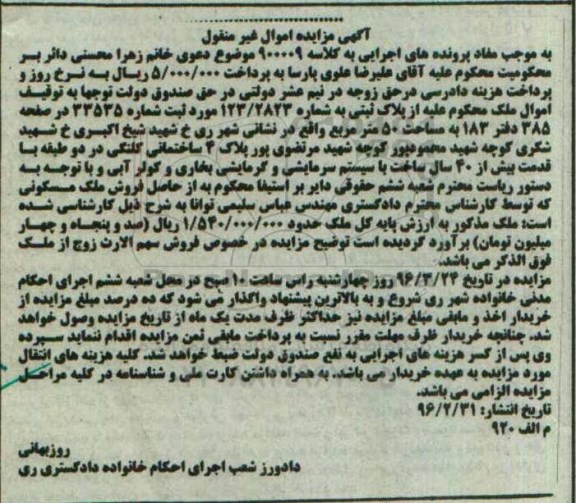 آگهی مزایده اموال غیر منقول
به موجب مفاد پرونده های اجرایی به کلاسه ۹۰۰۰۹ موضوع دعوی خانم زهرا محسنی دائر بر
محکومیت محکوم علیه آقای علیرضا علوی پارسا به پرداخت ۵/۰۰۰/۰۰۰ ریال به نرخ روز و
پرداخت هزینه دادرسی درحق زوجه در نیم عشر دولتی در حق صندوق دولت توجها به توقیف
اموال ملک محکوم علیه از پلاک ثبتی به شماره ۱۲۳/۲۸۲۳ مورد ثبت شماره ۳۳۵۳۵ در صفحه
۳۸۵ دفتر ۱۸۳ به مساحت ۵۰ متر مربع واقع در نشانی شهر ری خ شهید شیخ اکبری خ شهید
شکری کوچه شهید محمودپور کوچه شهید مرتضوی پور پلاک ۴ ساختمانی کلنگی در دو طبقه با
قدمت بیش از ۴۰ سال ساخت با سیستم سرمایشی و گرمایشی بخاری و کولر آبی و با توجه به
دستور ریاست محترم شعبه ششم حقوقی دایر بر استیفا محکوم به از حاصل فروش ملک مسکونی
که توسط کارشناس محترم دادگستری مهندس عباس سلیمی توانا به شرح ذیل کارشناسی شده
است: ملک مذکور به ارزش پایه کل ملک حدود ۱/۵۴۰/۰۰۰/۰۰۰ ریال (صد و پنجاه و چهار
میلیون تومان) برآورد گردیده است توضیح مزایده در خصوص فروش سهم الارث زوج از ملک
فوق الذکر می باشد.
مزایده در تاریخ ۹۶/۳/۲۴ روز چهارشنبه راس ساعت ۱۰ صبح در محل شعبه ششم اجرای احکام
مدنی خانواده شهر ری شروع و به بالاترین پیشنهاد واگذار می شود که ده درصد مبلغ مزایده از
خریدار اخذ و مابقی مبلغ مزایده نیز حداکثر ظرف مدت یک ماه از تاریخ مزایده وصول خواهد
شد. چنانچه خریدار ظرف مهلت مقرر نسبت به پرداخت مابقی ثمن مزایده اقدام ننماید سپرده
وی پس از کسر هزینه های اجرایی به نفع صندوق دولت ضبط خواهد شد. کلیه هزینه های انتقال
مورد مزایده به عهده خریدار می باشد. به همراه داشتن کارت ملی و شناسنامه در کلیه مراحل
مزایده الزامی می باشد.
تاریخ انتشار: ۹۶/۲/۳۱
م الف ۹۲۰
روزبهانی
دادورز شعب اجرای احکام خانواده دادگستری ری